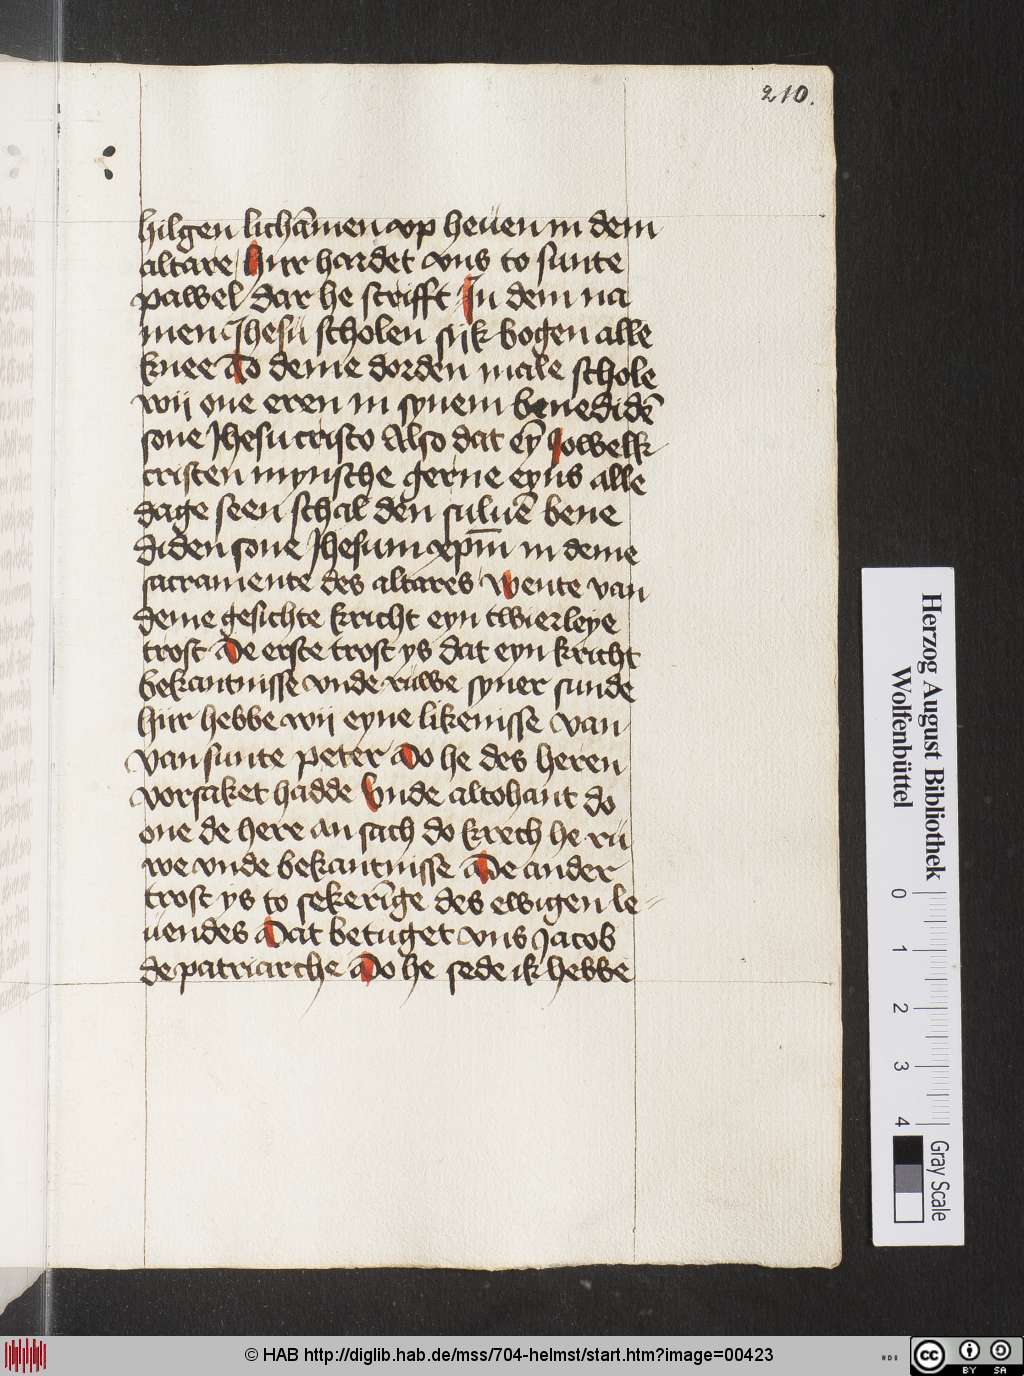 210.
hilgen lichāmen vp heuen in dem
altare / Hiir hardet vns to sunte
pawel dar he scrifft In dem na
men Jhesu scholen sijk bogen alle
knee To deme dorden male schole
wij one eren in synem benedidē
sone Jhesu cristo Also dat eȳ Jowelk
cristen mynsche gerne eyns alle
dage seen schal den suluē bene
diden sone Jhesum cepm̄ in deme
sacramente des altares Wente van
deme gesichte kricht eyn twierleye
trost De erste trost ys dat eyn kricht
bekantnisse vnde ruwe syner sunde
hiir hebbe wij eyne likenisse van
van sunte peter Do he des heren
vorsaket hadde Vnde altohant do
one de here an sach do krech he ru
we vnde bekantnisse De ander
trost ys to sekerīge des ewigen le
uendes Dat betuget vns Jacob
de patriarche Do he sede ik hebbe
Herzog August Bibliothek
Wolfenbüttel
0 1 2 3 4
Gray Scale
© HAB http://diglib.hab.de/mss/704-helmst/start.htm?image=00423
HAB
cc BY SA